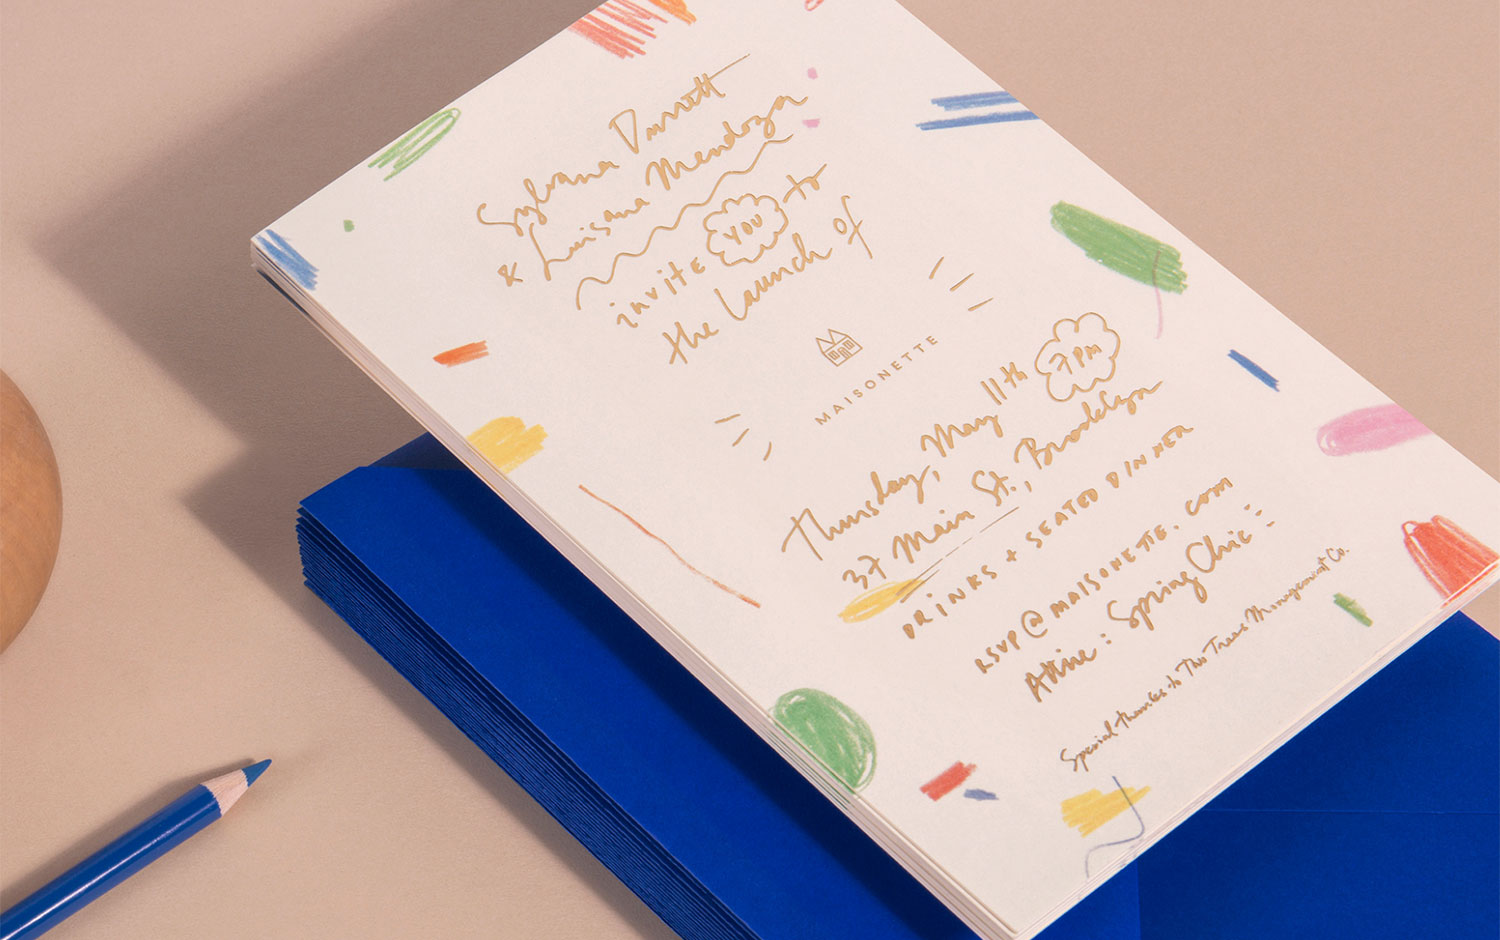 Sylvana Durrett
& Luisana Mendoza
invite YOU to
the launch of
MAISONETTE
Thursday, May 11th 7PM
37 Main St., Brooklyn
DRINKS + SEATED DINNER
RSVP@MAISONETTE.COM
Attire: Spring Chic
Special thanks to The Trees Management Co.